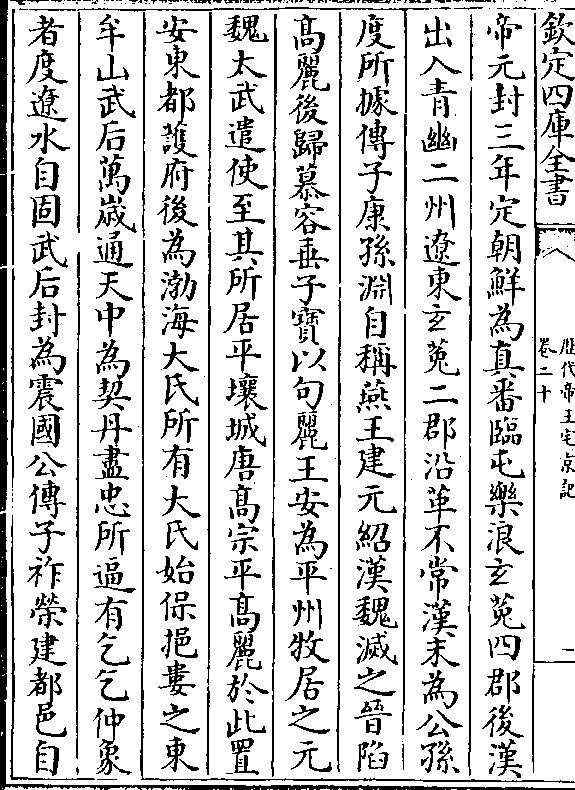 欽定四庫全書
歷代帝王宅京記
卷二十
一
帝元封三年定朝鮮為真番臨屯樂浪玄菟四郡後漢
出入青幽二州遼東玄菟二郡沿革不常漢末為公孫
度所據傳子康孫淵自稱燕王建元紹漢魏滅之晉陷
高麗後歸慕容垂子寶以句麗王安為平州牧居之元
魏太武遣使至其所居平壤城唐高宗平高麗於此置
安東都護府後為渤海大氏所有大氏始保挹婁之東
牟山武后萬嵗通天中為契丹盡忠所逼有乞乞仲象
者度遼水自固武后封為震國公傳子祚榮建都邑自